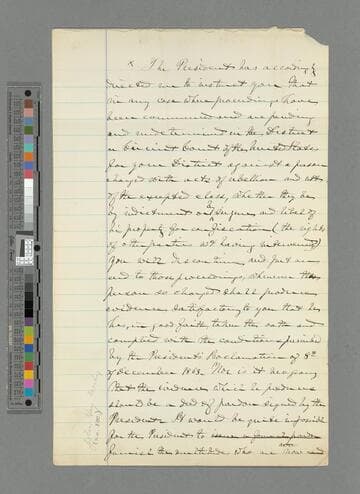 x The President has accordingly
directed me to instruct you, that
in any case where proceedings have
been commenced and are pending
and undetermined in the District
or Circuit Court of the United States
for your District against a person
charged with acts of rebellion and not
of the excepted class, whether they be
by indictment or and libel of
his property for confiscation (the rights
of other parties not having intervened)
you will discontinue and put an
end to those proceedings, whenever the
person so charged shall produce
evidence satisfactory to you that he
has, in good faith, taken the oath and
complied with the conditions prescribed
by the President's Proclamation of 8th
of December 1863. Nor is it necessary
that the evidence which he produces
should be a deed of pardon signed by the
President. It would be quite impossible
for the President to issue a
furnish the multitude who are now